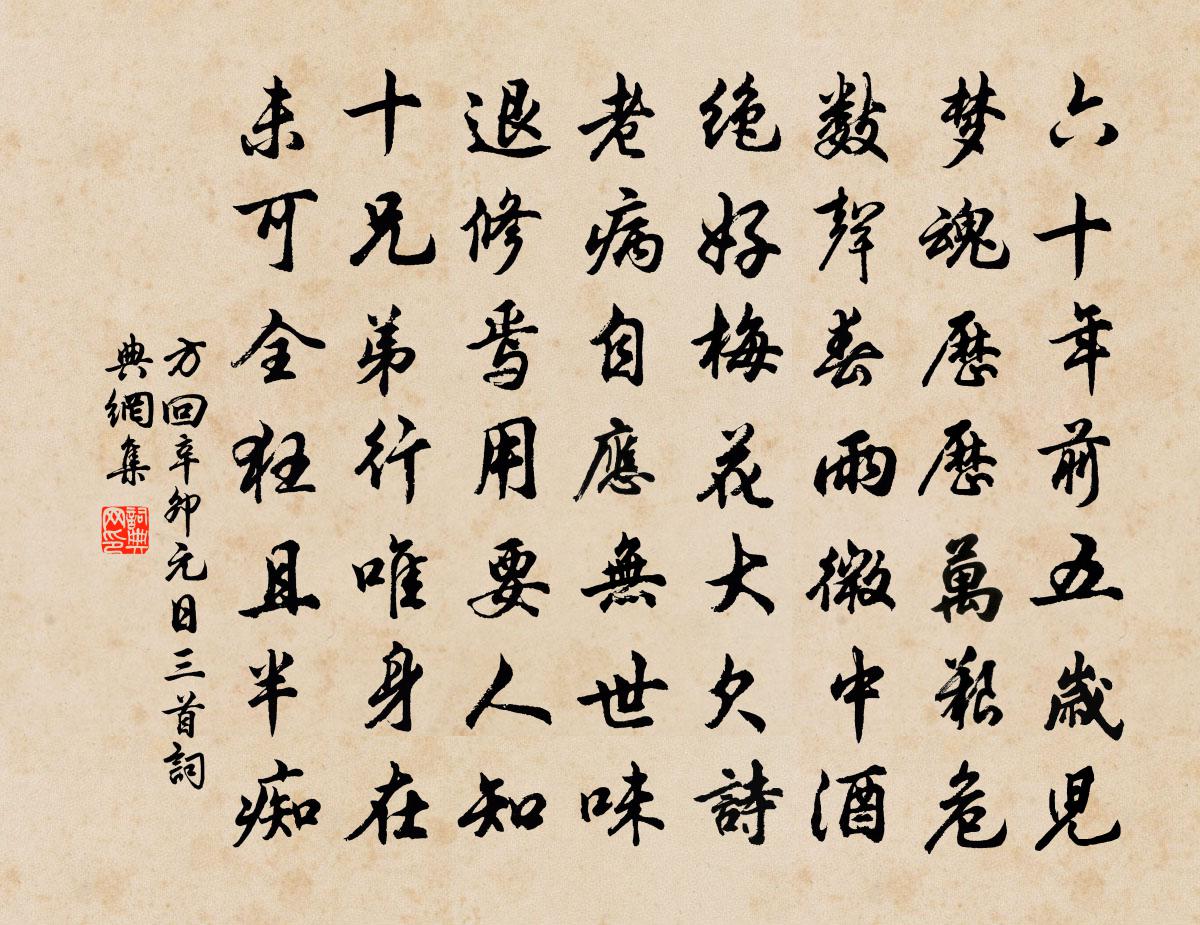 六十年前五歲兒
梦魂歷歷萬艱危
數聲春雨微中酒
絕好梅花大欠詩
老病自應無世味
退修焉用要人知
十兄弟行唯身在
未可全狂且半痴
方回辛卯元日三首詞
典網集
詞典
网印